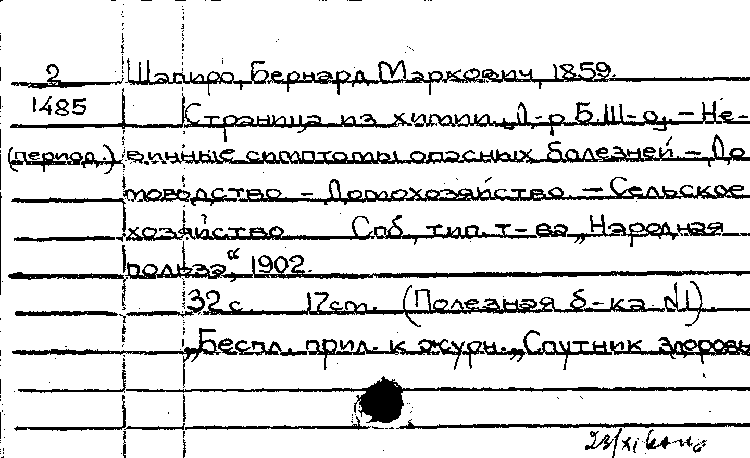 2 Шапиро, Бернард Маркович, 1859.
1485 Страница из химии. „Д-р Б.Ш-о„ — Не-
(период.) винные симптомы опасных болезней — До
товодство — Домохозяйство. — Сельское
хозяйство Спб, тип. т-ва „Народная
польза“, 1902.
32 с. 17 cm. (Полезная б-ка №1).
„Беспл. прил. к журн. „Спутник здоровь